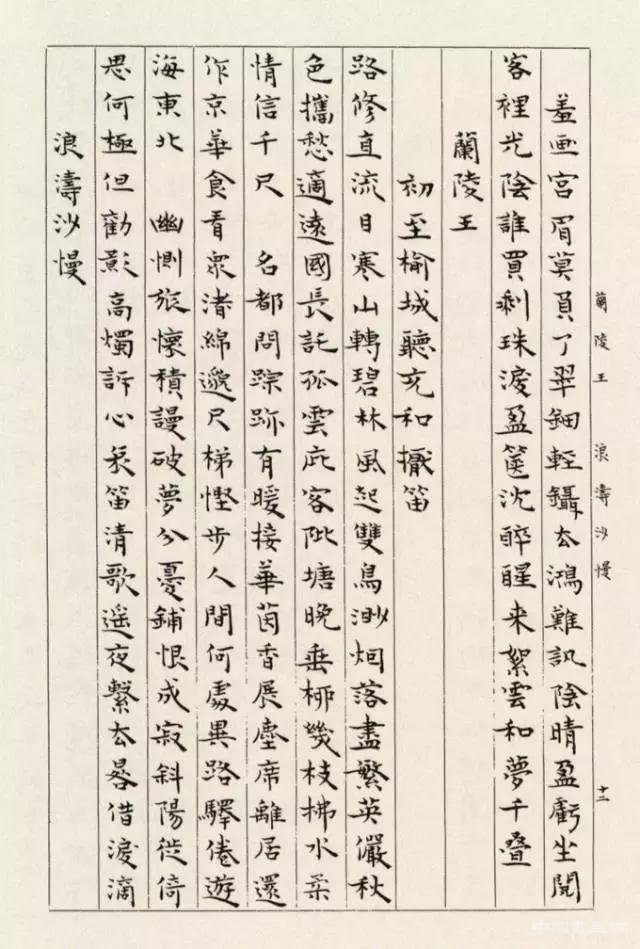 蘭陵王 浪濤沙慢 十二
羞画宮眉莫負了翠鈿輕鑷去鴻難訊陰晴盈虧坐閱
客裡光陰誰買剩珠淚盈篋沈醉醒来絮雲和夢千叠
蘭陵王
初至榆城聽充和擫笛
路修直流目寒山轉碧林風起雙鳥渺烟落盡繁英儼秋
色攜愁適遠國長託孤雲庇客陂塘晚垂栁幾枝拂水柔
情信千尺 名都問踪跡有暖接華茵香展塵席離居還
作京華食看眾渚綿邈尺梯慳步人間何處異路驛倦遊
海東北 幽惻旅懷積謾破夢分憂鋪恨成寂斜陽徙倚
思何極但勸影高燭訴心哀笛清歌遥夜繫去晷借淚滴
浪濤沙慢